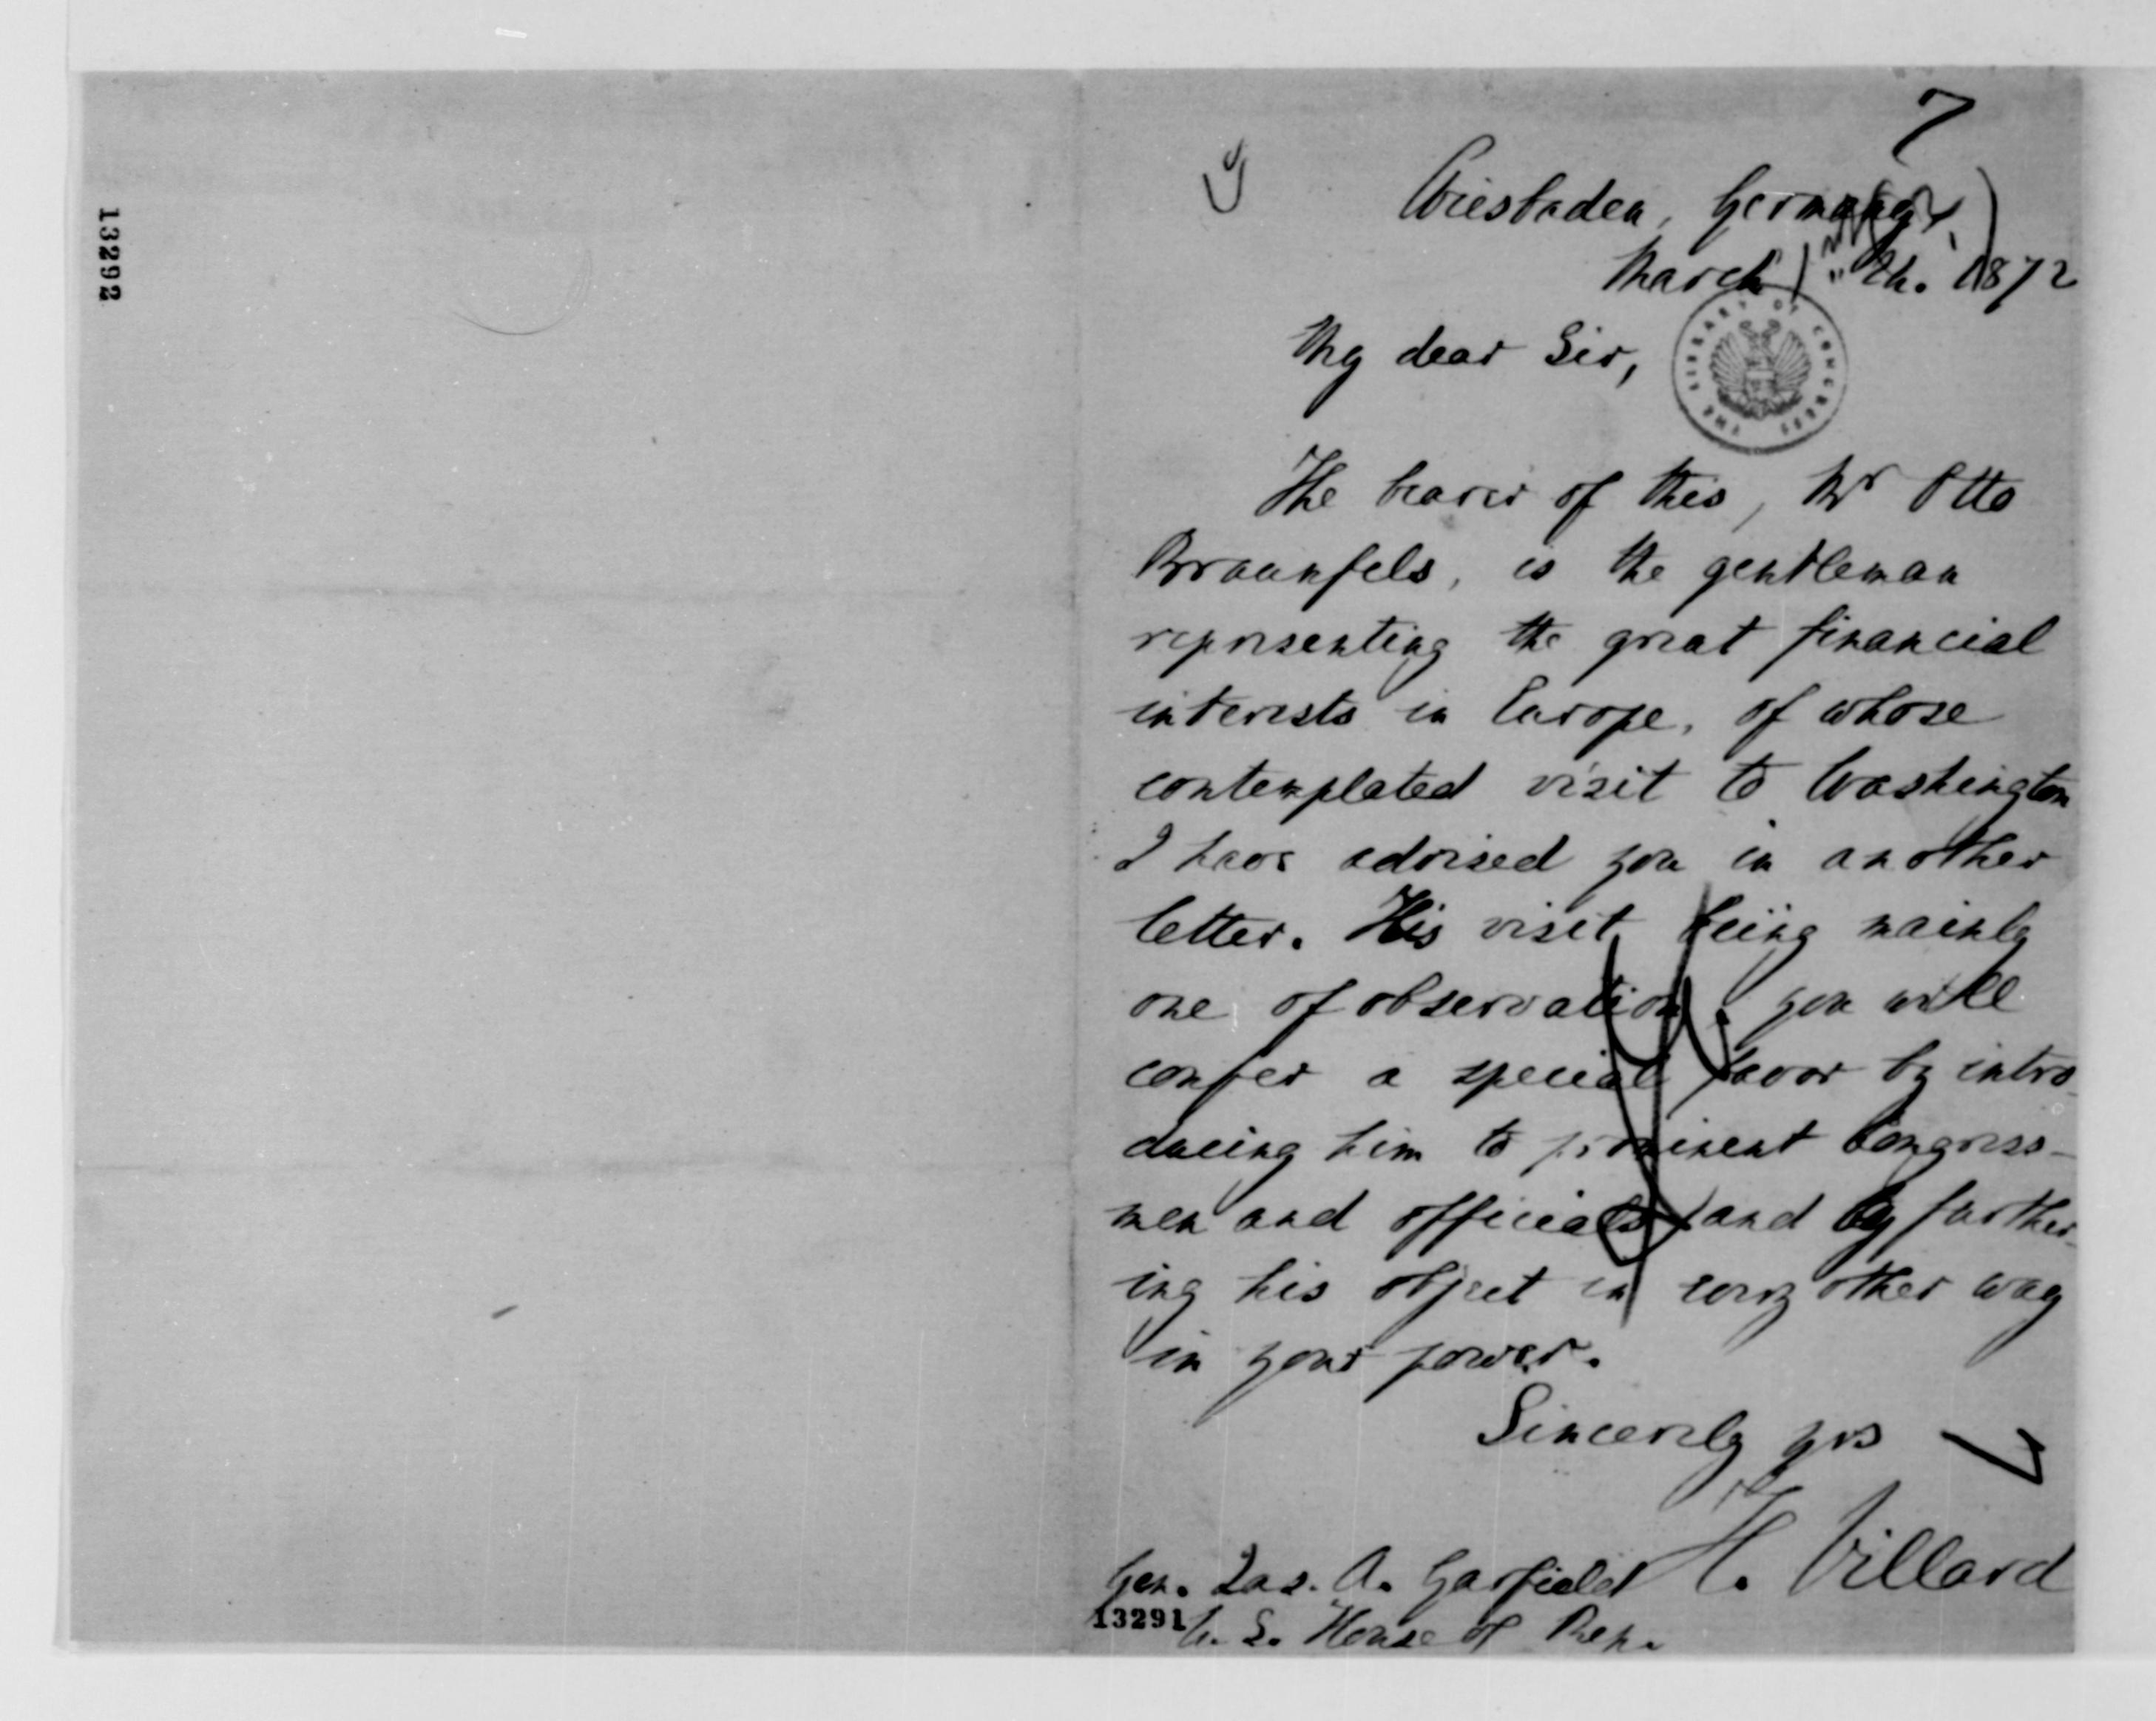 13292
7
Wiesbaden, Germany,
March 1872
My dear Sir,
THE LIBRARY OF CONGRESS
The bearer of this, Mr Otto
Braunfels, is the gentleman
representing the great financial
interests in Europe, of whose
contemplated visit to Washington
I have advised you in another
letter. His visit being mainly
one of observation, you will
confer a special favor by intro-
ducing him to prominent Congress-
men and officials and by further-
ing his object in every other way
in your power.
Sincerely yrs
H. Villard
Gen. Jas. A. Garfield
13291
U. S. House of Rep.